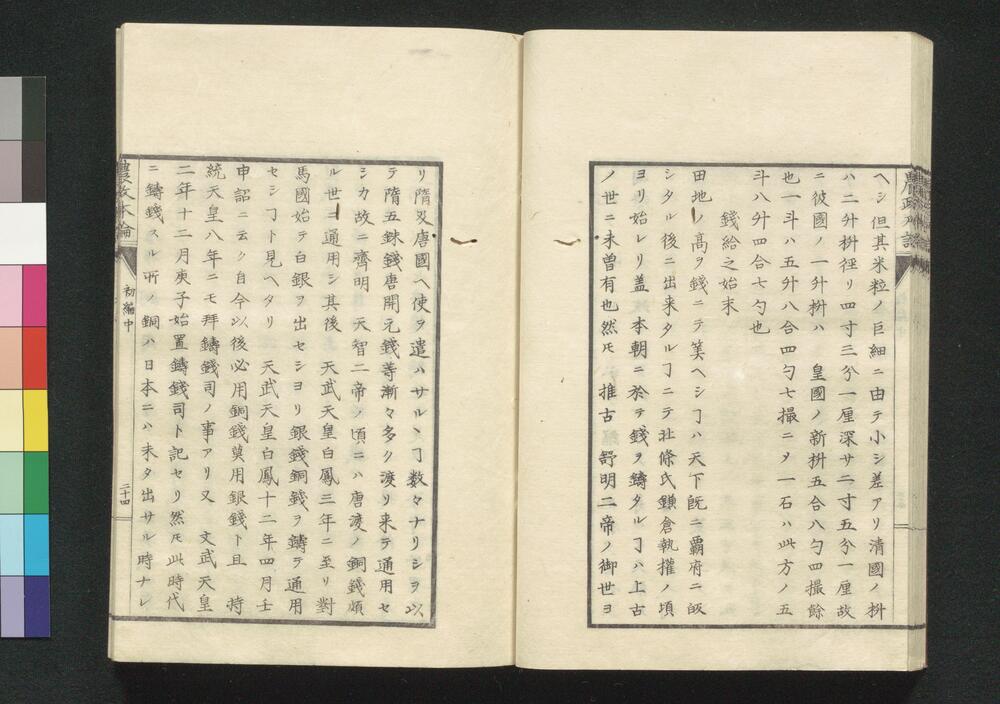 ヘシ但其米粒ノ巨細ニ由テ小シ差アリ清國ノ枡
ハ二升枡徑リ四寸三分一厘深サ二寸五分一厘故
ニ彼國ノ一升枡ハ 皇國ノ新枡五合八勺四撮餘
也一斗ハ五升八合四勺七撮ニメ一石ハ此方ノ五
斗八升四合七勺也
錢給之始末
田地ノ高ヲ錢ニテ筭ヘシヿハ天下既ニ覇府ニ皈
シタル後ニ出来タルヿニテ北條氏鎌倉執權ノ頃
ヨリ始レリ蓋 本朝ニ於テ錢ヲ鑄タルヿハ上古
ノ世ニ未曽有也然𪜈 推古舒明二帝ノ御世ヨ
リ隋及唐國ヘ使ヲ遣ハサルヽヿ数々ナリシヲ以
テ隋五銖錢唐開元錢等漸々多ク渡リ来テ通用セ
シカ故ニ齊明 天智二帝ノ頃ニハ唐渡ノ銅錢頗
ル世ニ通用シ其後 天武天皇白鳳三年ニ至リ對
馬國始テ白銀ヲ出セシヨリ銀錢銅錢ヲ鑄テ通用
セシヿト見ヘタリ 天武天皇白鳳十二年四月壬
申詔ニ云ク自今以後必用銅錢莫用銀錢ト且 持
統天皇八年ニモ拜鑄錢司ノ事アリ又 文武天皇
二年十二月庚子始置鑄錢司ト記セリ然𪜈此時代
ニ鑄錢スル所ノ銅ハ日本ニハ未タ出サル時ナレ
農政本論
初編中
二十四